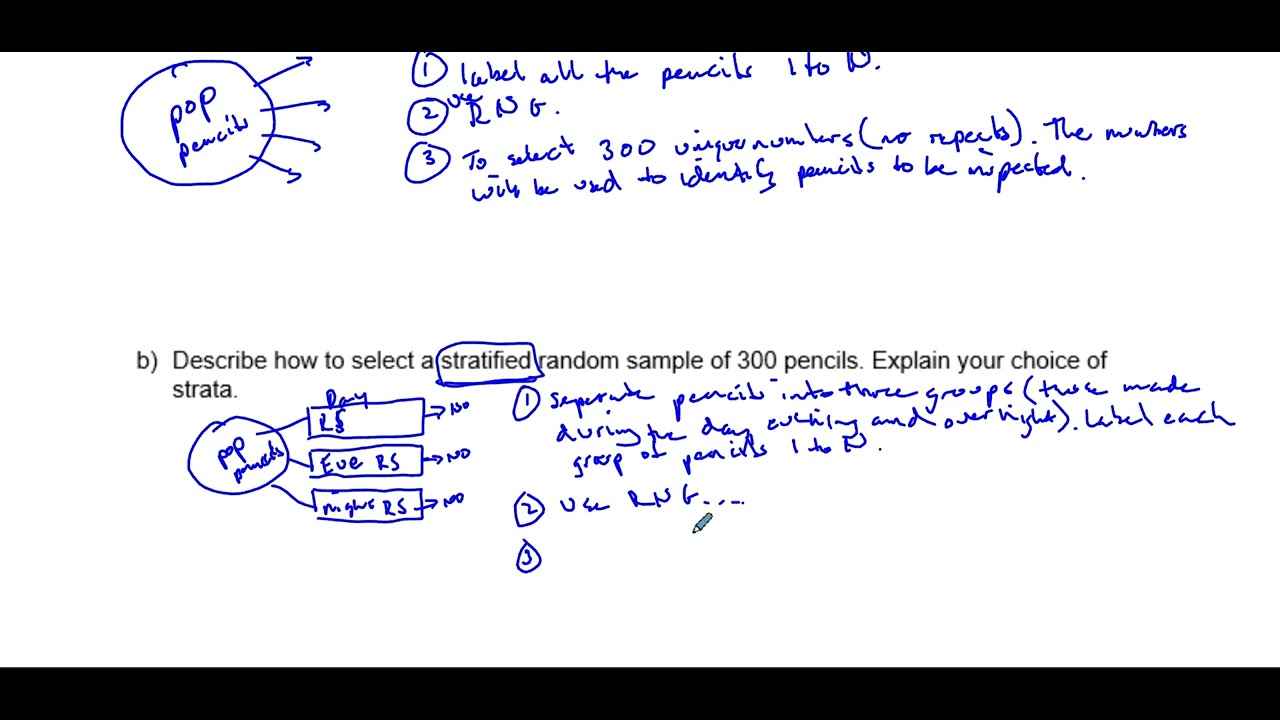 ① label all the pencils 1 to N.
② use RNG.
③ To select 300 unique numbers (no repeats). The numbers
will be used to identify pencils to be inspected.
pop
pencils
b) Describe how to select a stratified random sample of 300 pencils. Explain your choice of
strata.
Day
RS
100
Eve RS
100
night RS
100
pop
pencils
① Seperate pencils into three groups (those made
during the day, evening and overnight). Label each
group of pencils 1 to N.
② Use RNG....
③